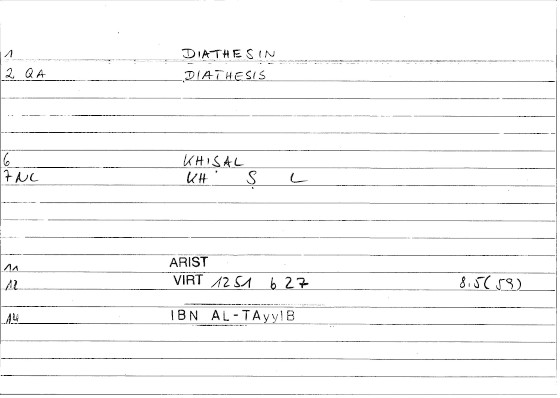 1 DIATHESIN
2 QA DIATHESIS
6 KHIṢAL
7 NC KH Ṣ L
11 ARIST
12 VIRT 1251 b 27 8.5(59)
14 IBN AL-TAyyIB